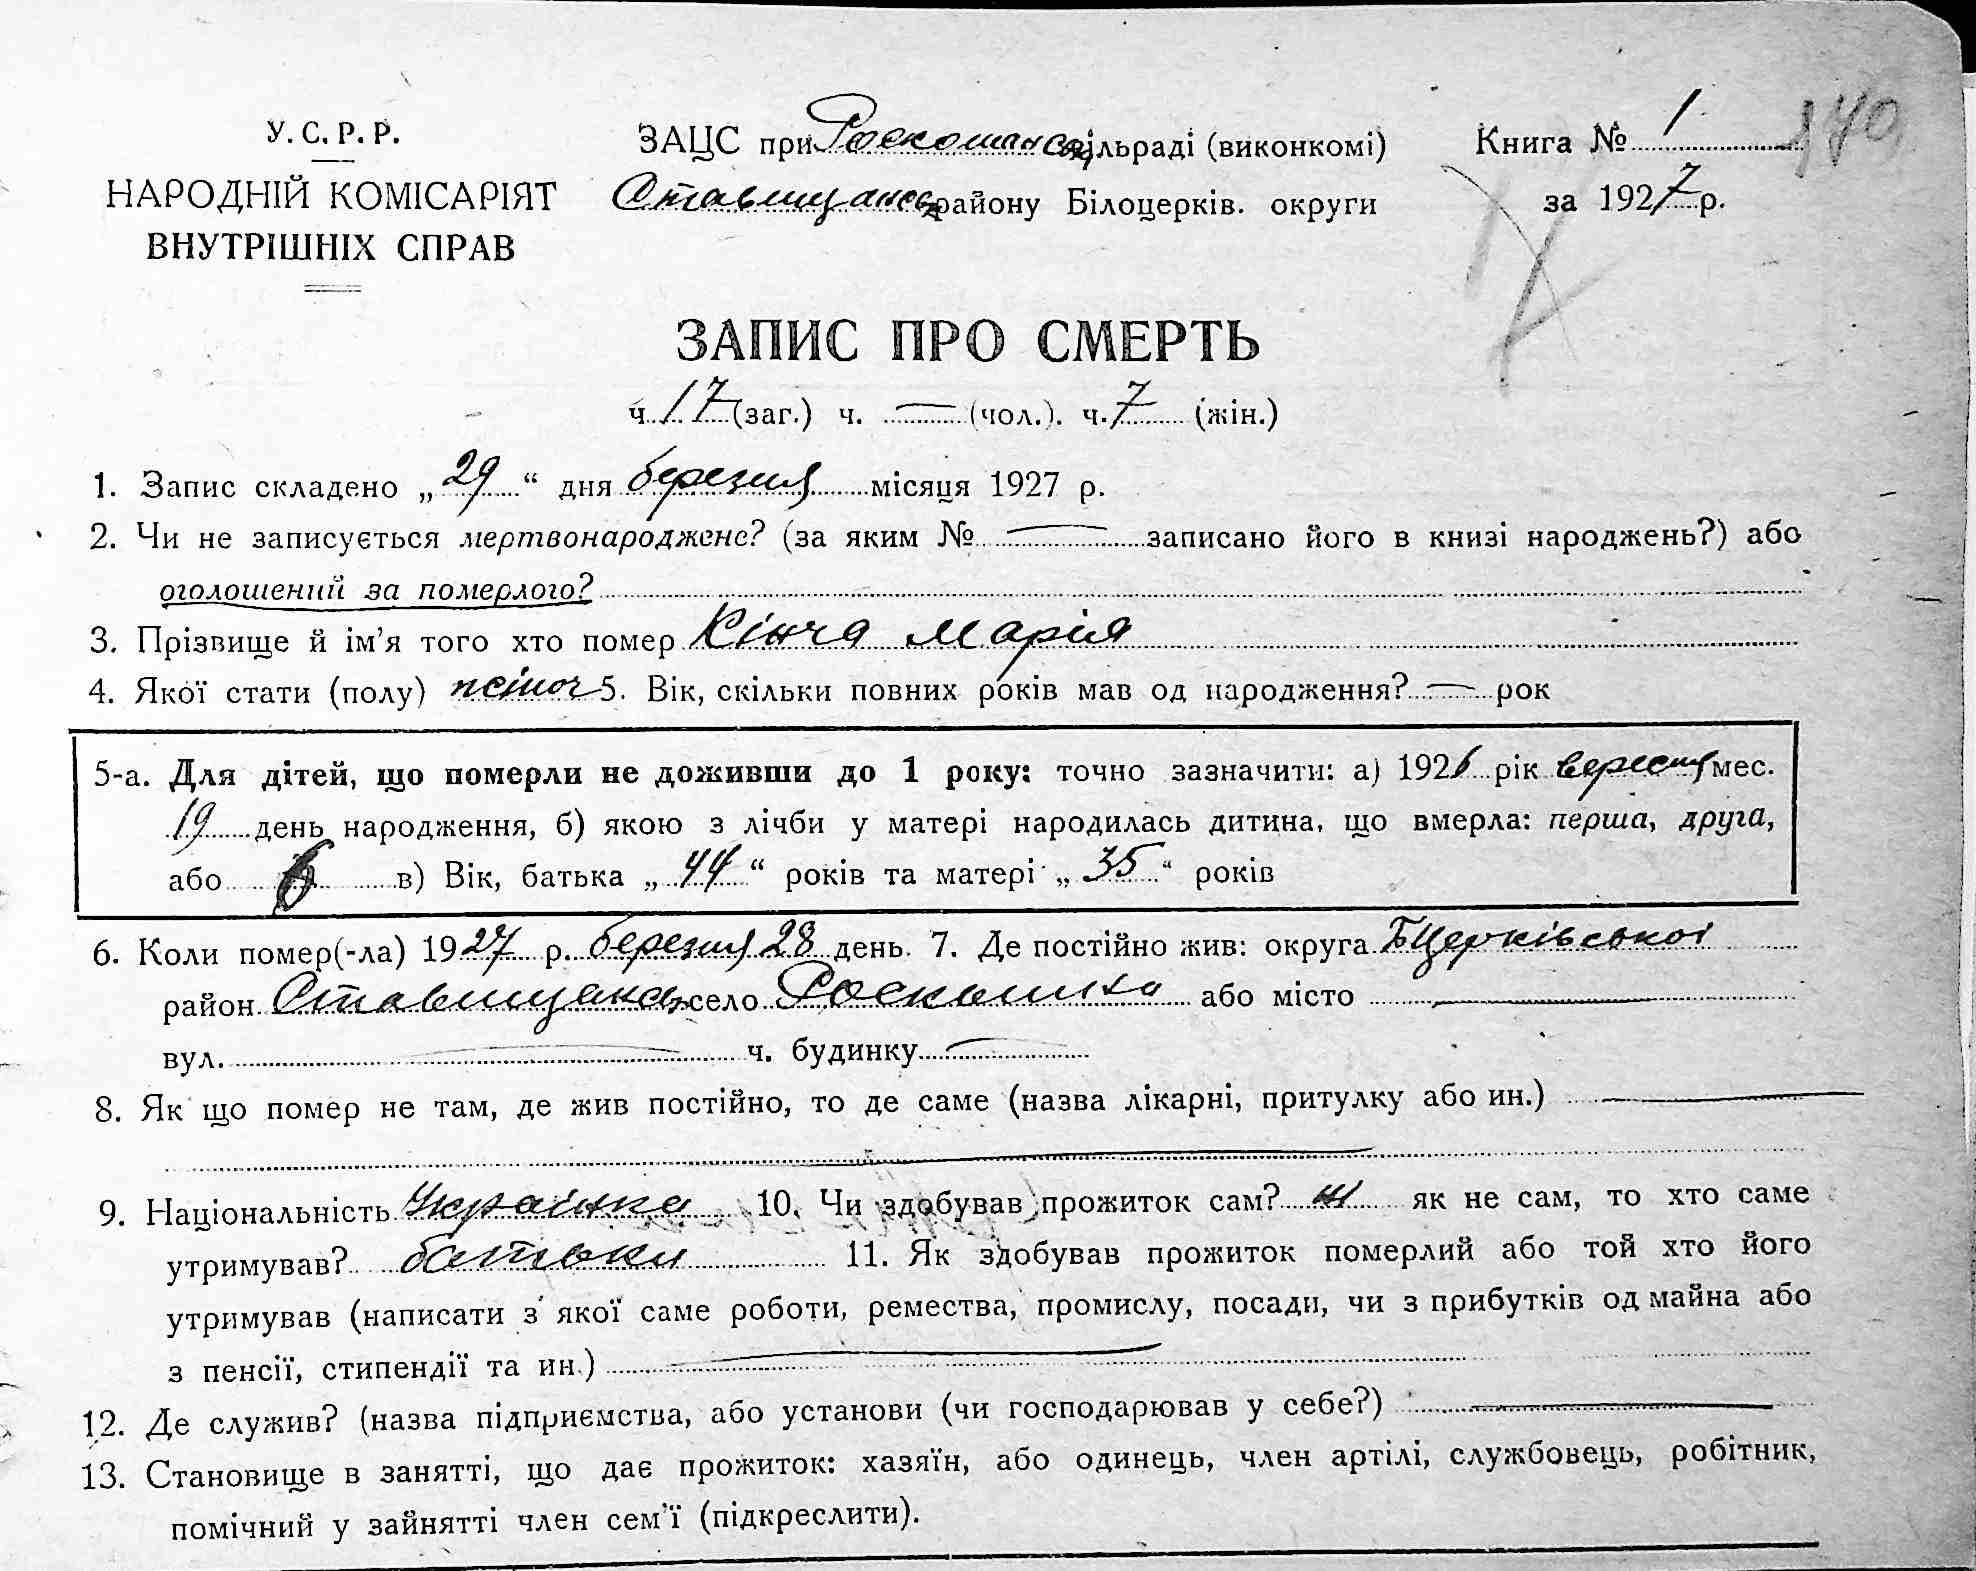 У.С.Р.Р.
НАРОДНІЙ КОМІСАРІЯТ
ВНУТРІШНІХ СПРАВ
ЗАЦС при Роскошанс. сільраді (виконкомі)
Ставищанськ району Білоцерків. округи
Книга № 1
за 1927 р.
170
17
ЗАПИС ПРО СМЕРТЬ
ч. 17 (заг.) ч. — (чол.). ч. 7 (жін.)
1. Запис складено „ 29 “ дня березня місяця 1927 р.
2. Чи не записується мертвонароджене? (за яким № — записано його в книзі народжень?) або
оголошений за померлого?
3. Прізвище й ім’я того хто помер Кінча Марія
4. Якої стати (полу) жіноч 5. Вік, скільки повних років мав од народження? — рок
5-а. Для дітей, що померли не доживши до 1 року: точно зазначити: а) 1926 рік вересня мес.
19 день народження, б) якою з лічби у матері народилась дитина, що вмерла: перша, друга,
або 6 в) Вік, батька „ 44 “ років та матері „ 35 “ років
6. Коли помер(-ла) 1927 р. березня 28 день. 7. Де постійно жив: округа БЦерківської
район Ставищанськ село Роскошна або місто —
вул. — ч. будинку —
8. Як що помер не там, де жив постійно, то де саме (назва лікарні, притулку або ин.) —
9. Національність Українка 10. Чи здобував прожиток сам? ні як не сам, то хто саме
утримував? батьки 11. Як здобував прожиток померлий або той хто його
утримував (написати з якої саме роботи, ремества, промислу, посади, чи з прибутків од майна або
з пенсії, стипендії та ин.) —
12. Де служив? (назва підприємства, або установи (чи господарював у себе?) —
13. Становище в занятті, що дає прожиток: хазяїн, або одинець, член артілі, службовець, робітник,
помічний у зайнятті член сем’ї (підкреслити).